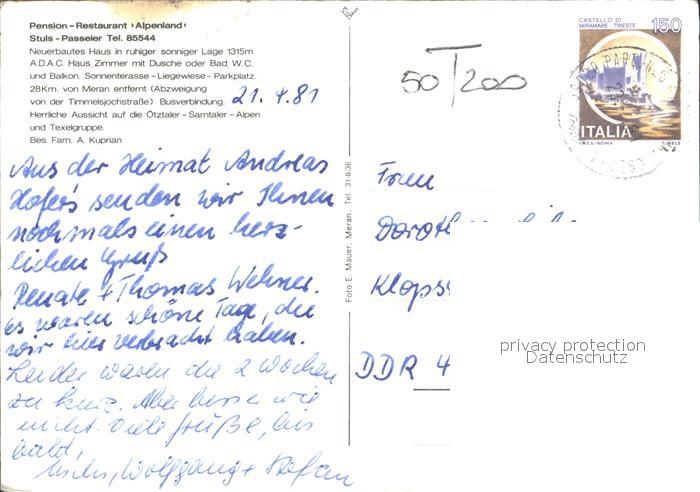 Pension-Restaurant ›Alpenland‹
Stuls-Passeier Tel. 85544
Neuerbautes Haus in ruhiger sonniger Lage 1315m
A.D.A.C. Haus, Zimmer mit Dusche oder Bad, W.C.
und Balkon. Sonnenterasse-Liegewiese-Parkplatz.
28Km. von Meran entfernt (Abzweigung
von der Timmelsjochstraße) Busverbindung.
Herrliche Aussicht auf die Ötztaler-Sarntaler-Alpen
und Texelgruppe.
Bes. Fam. A. Kuprian
21.4.81
Aus der Heimat Andreas
Hofers senden wir Ihnen
nochmals einen herz-
lichen Gruß
Renate + Thomas Wehner.
Es waren schöne Tage, die
wir hier verbracht haben.
Leider waren die 2 Wochen
zu kurz. Aber besser wie
nicht. Viele Grüße, bis
bald,
Wolfgang + Stefan
Foto E. Mauer, Meran, Tel. 31-8-36
50 T 200
CASTELLO DI
MIRAMARE - TRIESTE
150
ITALIA
I.P.Z.S.-ROMA
Frau
Doroth
Klops
DDR 4
privacy protection
Datenschutz